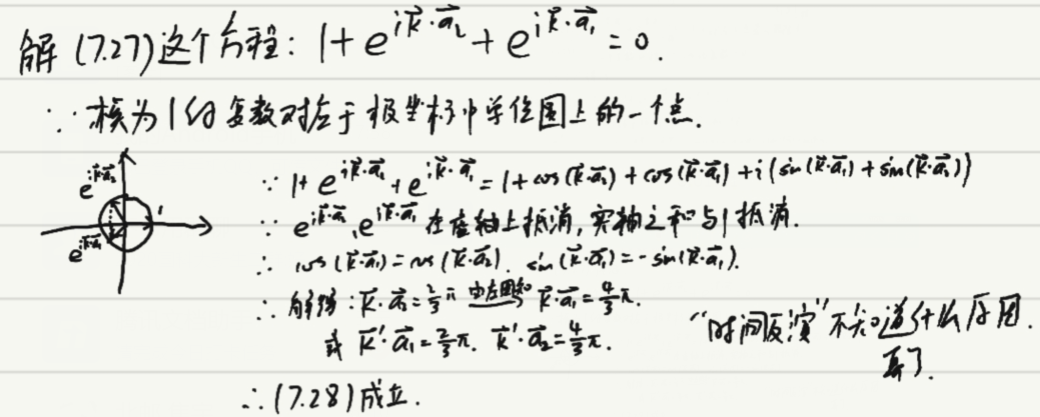 解 (7.27)这个方程: 1+e^{i\vec{k}·\vec{a_2}}+e^{i\vec{k}·\vec{a_1}}=0.
∵ 模为1的复数对应于极坐标中单位圆上的一个点.
e^{i\vec{k}·\vec{a_2}}
1
e^{i\vec{k}·\vec{a_1}}
∵ 1+e^{i\vec{k}·\vec{a_2}}+e^{i\vec{k}·\vec{a_1}}=1+cos(\vec{k}·\vec{a_2})+cos(\vec{k}·\vec{a_1})+i(sin(\vec{k}·\vec{a_1})+sin(\vec{k}·\vec{a_2}))
∵ e^{i\vec{k}·\vec{a_2}}, e^{i\vec{k}·\vec{a_1}} 在虚轴上抵消, 实轴之和与1抵消.
∴ cos(\vec{k}·\vec{a_1})=cos(\vec{k}·\vec{a_2}). sin(\vec{k}·\vec{a_2})=-sin(\vec{k}·\vec{a_1}).
∴ 解得: \vec{k}·\vec{a_2}=\frac{2}{3}π 由左图知 \vec{k}·\vec{a_1}=\frac{4}{3}π.
或 \vec{k}'·\vec{a_1}=\frac{2}{3}π. \vec{k}'·\vec{a_2}=\frac{4}{3}π.
∴ (7.28)成立.
"时间反演"不知道什么原因.
弃了.